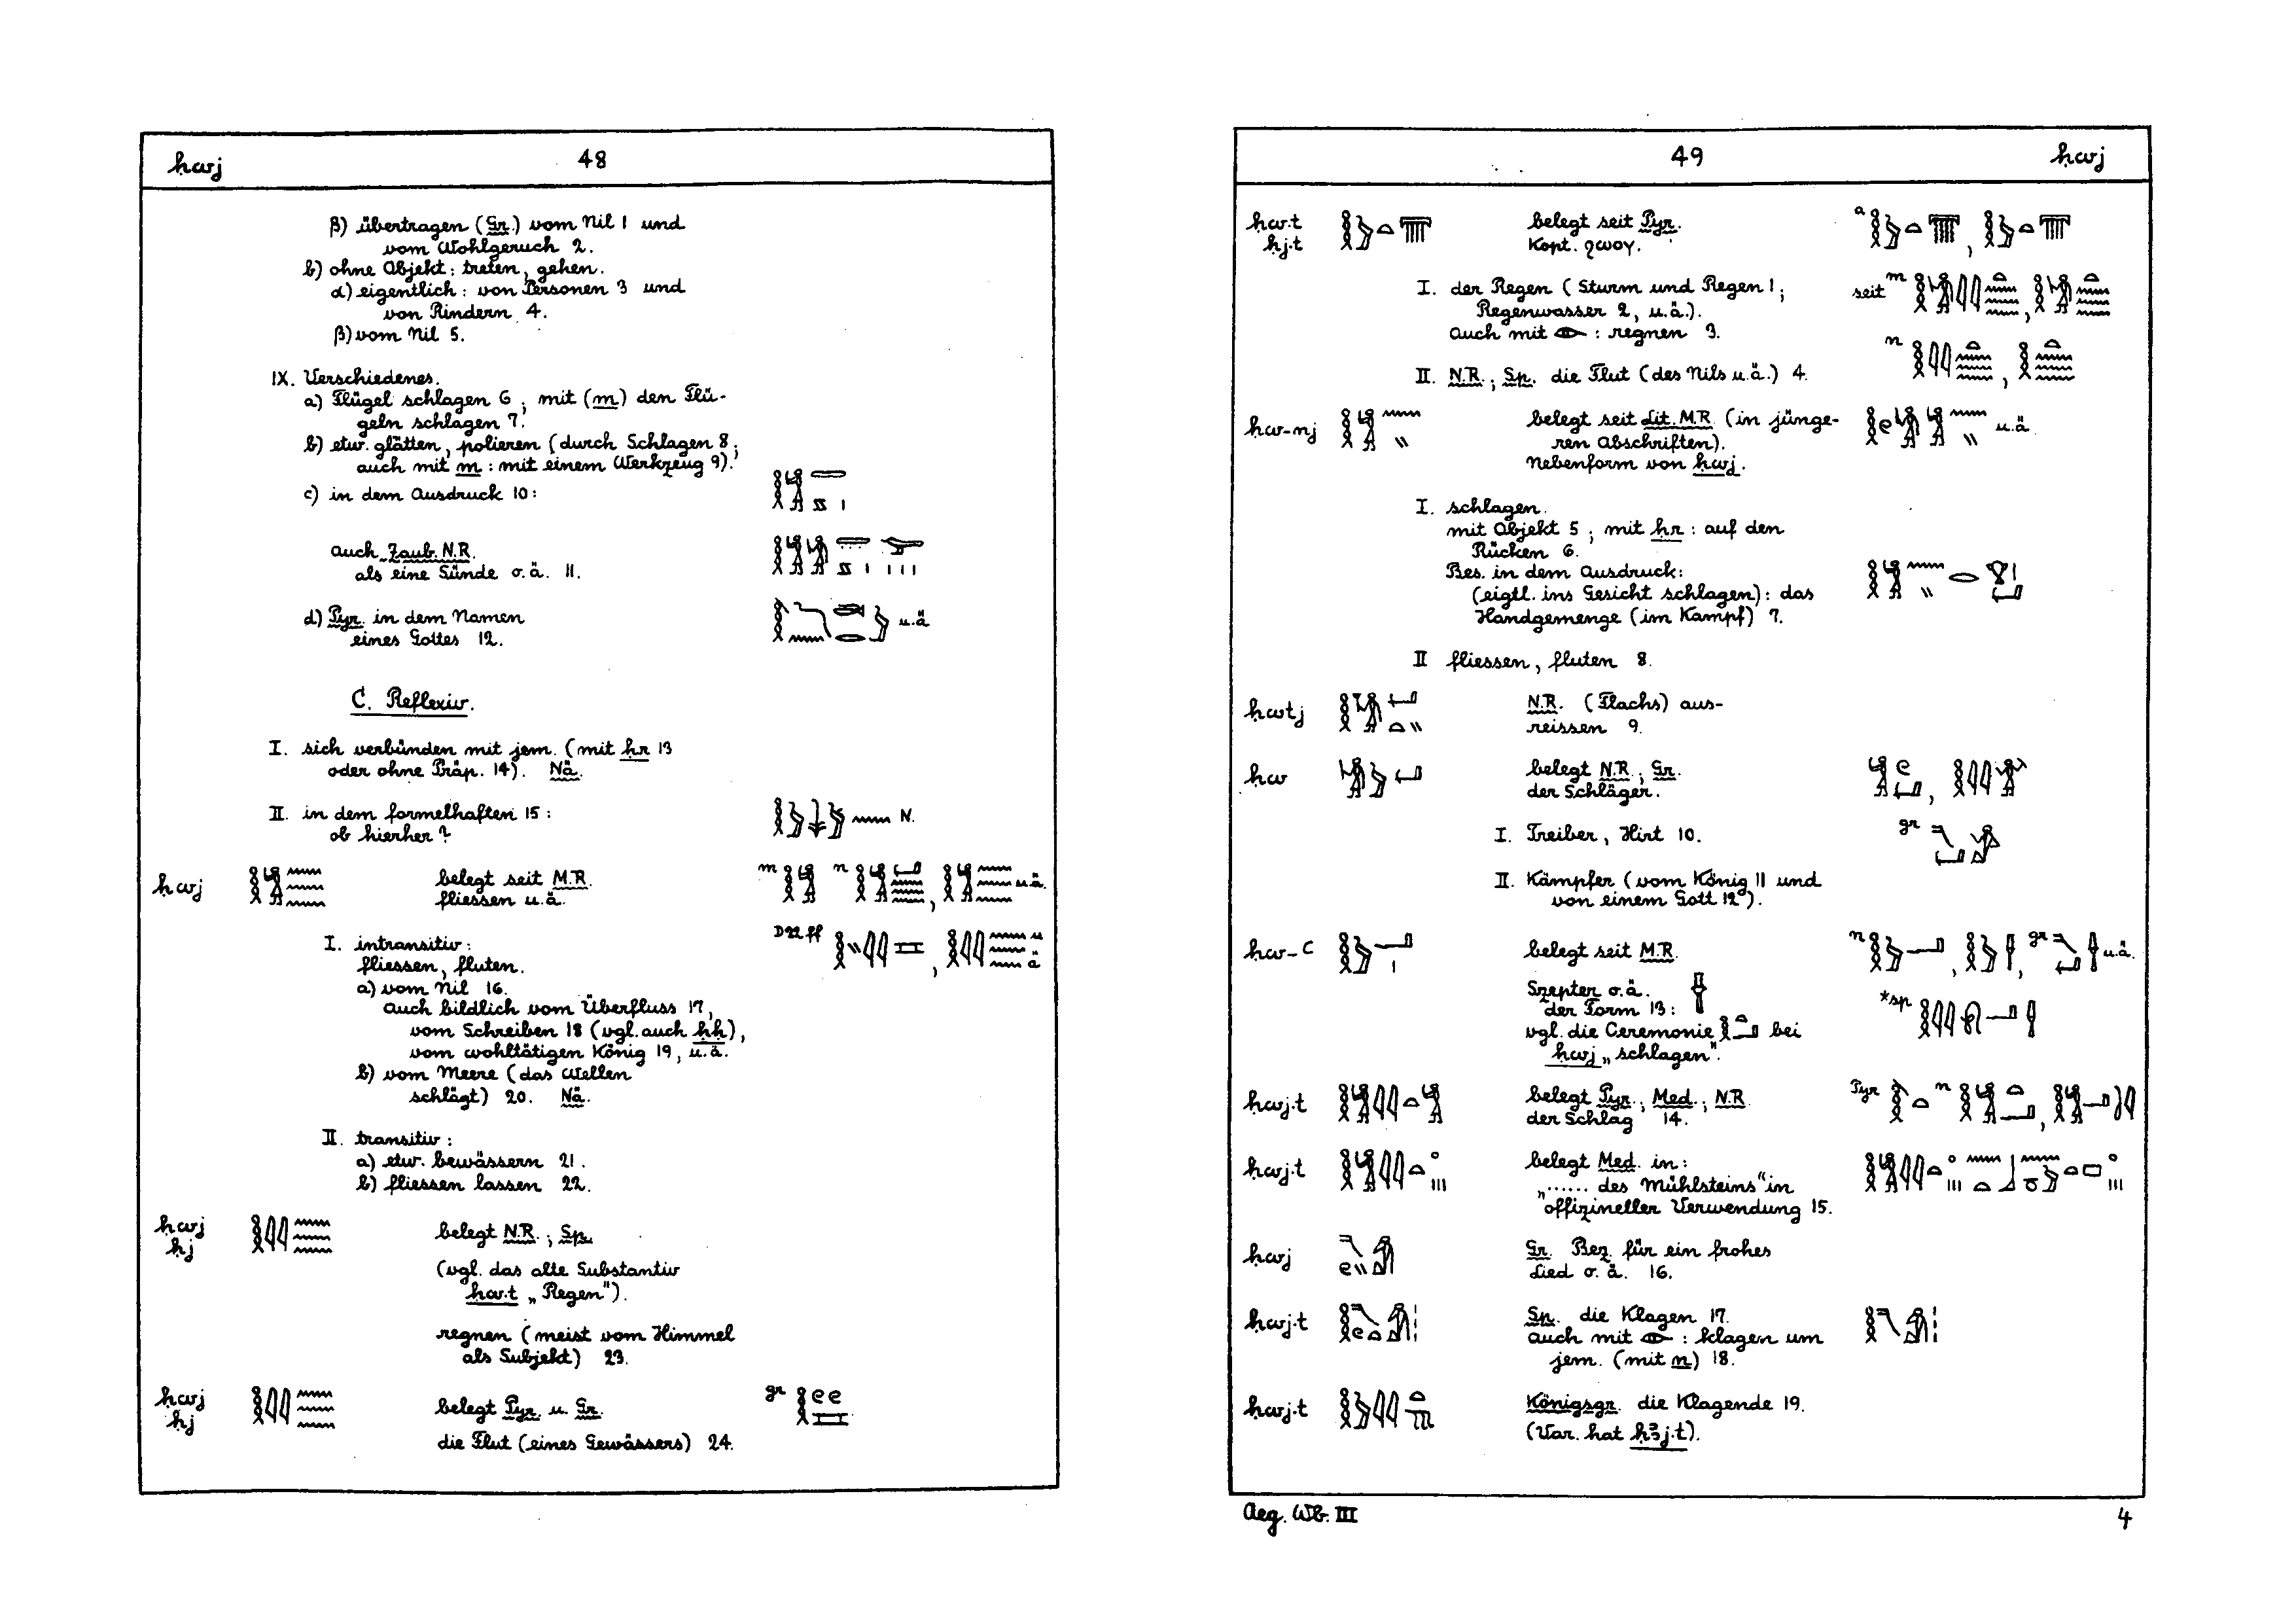 ḥwj 48
β) übertragen (Gr.) vom Nil 1 und
vom Wohlgeruch 2.
b) ohne Objekt: treten, gehen.
α) eigentlich: von Personen 3 und
von Rindern 4.
β) vom Nil 5.
IX. Verschiedenes.
a) Flügel schlagen 6; mit (m) den Flü-
geln schlagen 7.
b) etw. glätten, polieren (durch Schlagen 8;
auch mit m: mit einem Werkzeug 9).
c) in dem Ausdruck 10:
auch Zaub. N.R.
als eine Sünde o.ä. 11.
d) Pyr. in dem Namen
eines Gottes 12.
u.ä
C. Reflexiv.
I. sich verbünden mit jem. (mit ḥr 13
oder ohne Präp. 14). Nä.
II. in dem formelhaften 15:
ob hierher?
N.
ḥwj belegt seit M.R. m n , u.ä.
fliessen u.ä.
D22ff , u
ä
I. intransitiv:
fliessen, fluten.
a) vom Nil 16.
auch bildlich vom Überfluss 17,
vom Schreiben 18 (vgl. auch ḥḥ),
vom wohltätigen König 19, u.ä.
b) vom Meere (das Wellen
schlägt) 20. Nä.
II. transitiv:
a) etw. bewässern 21.
b) fliessen lassen 22.
ḥwj belegt N.R.; Sp.
ḥj
(vgl. das alte Substantiv
ḥw.t „Regen").
regnen (meist vom Himmel
als Subjekt) 23.
ḥwj belegt Pyr. u. Gr. gr
ḥj
die Flut (eines Gewässers) 24.
49 ḥwj
ḥw.t belegt seit Pyr. a ,
ḥj.t Kopt. ϩⲱⲟⲩ.
I. der Regen (Sturm und Regen 1; seit m ,
Regenwasser 2, u.ä.).
auch mit : regnen 3.
n ,
II. N.R.; Sp. die Flut (des Nils u.ä.) 4.
ḥw-nj belegt seit Lit. M.R. (in jünge- u.ä.
ren Abschriften).
Nebenform von ḥwj.
I. schlagen.
mit Objekt 5; mit ḥr: auf den
Rücken 6.
Bes. in dem Ausdruck:
(eigtl. ins Gesicht schlagen): das
Handgemenge (im Kampf) 7.
II fliessen, fluten 8.
ḥwtj N.R. (Flachs) aus-
reissen 9.
ḥw belegt N.R.; Gr.
der Schläger. ,
I. Treiber, Hirt 10. gr
II. Kämpfer (vom König 11 und
von einem Gott 12).
ḥw-C belegt seit M.R. n , , gr u.ä.
Szepter o.ä.
der Form 13: *sp
vgl. die Ceremonie bei
ḥwj „schlagen".
ḥwj.t belegt Pyr.; Med.; N.R. Pyr n ,
der Schlag 14.
ḥwj.t belegt Med. in:
„...... des Mühlsteins" in
offizineller Verwendung 15.
ḥwj Gr. Bez. für ein frohes
Lied o.ä. 16.
ḥwj.t Sp. die Klagen 17.
auch mit : klagen um
jem. (mit n) 18.
ḥwj.t Königsgr. die Klagende 19.
(Var. hat ḥꜣj.t).
Aeg. Wb. III 4